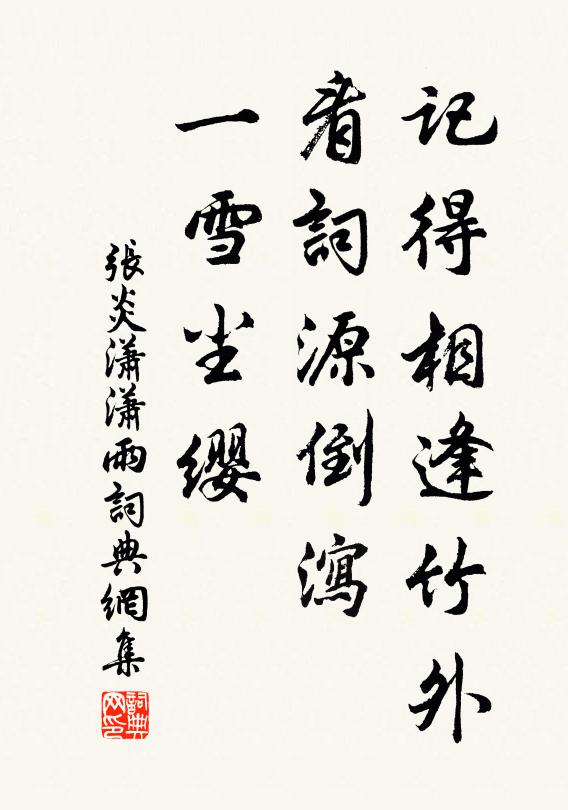 記得相逢竹外
看詞源倒瀉
一雪尘纓
張炎瀟瀟雨詞典網集
詞典网印